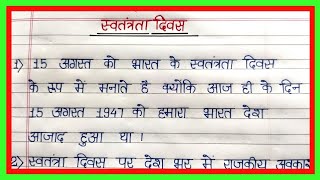 स्वतंत्रता दिवस
1) 15 अगस्त को भारत के स्वतंत्रता दिवस
के रूप में मनाते है क्योंकि आज ही के दिन
15 अगस्त 1947 को हमारा भारत देश
आजाद हुआ था।
2) स्वतंत्रा दिवस पर देश भर में राजकीय अवकाश